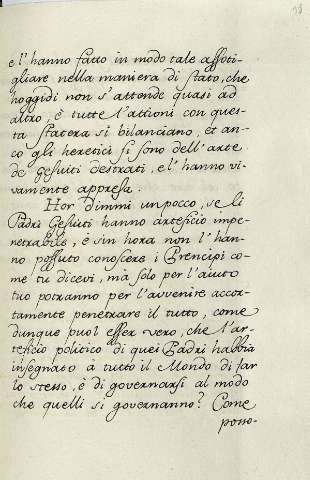 e l'hanno fatto in modo tale assoti-
gliare nella maniera di stato, che
hoggidì non s'attende quasi ad
altro, è tutte l'attioni con ques-
ta statera si bilanciano, et an-
co gli heretici si sono dell'arte
de gesuiti destrati, e l'hanno vi-
vamente appresa.
Hor dimmi un pocco, se li
Padri Gesuiti hanno arteficio impe-
netrabile, è sin hora non l'han-
no possuto conoscere i Prencipi co-
me tu dicevi, mà solo per l'aiuto
tuo potranno per l'avvenire accor-
tamente penetrare il tutto, come
dunque puol esser vero, che l'ar-
teficio politico di quei Padri habbia
insegnato a tutto il Mondo di far
lo stesso, è di governarsi al modo
che quelli si governanno? Come
posso-